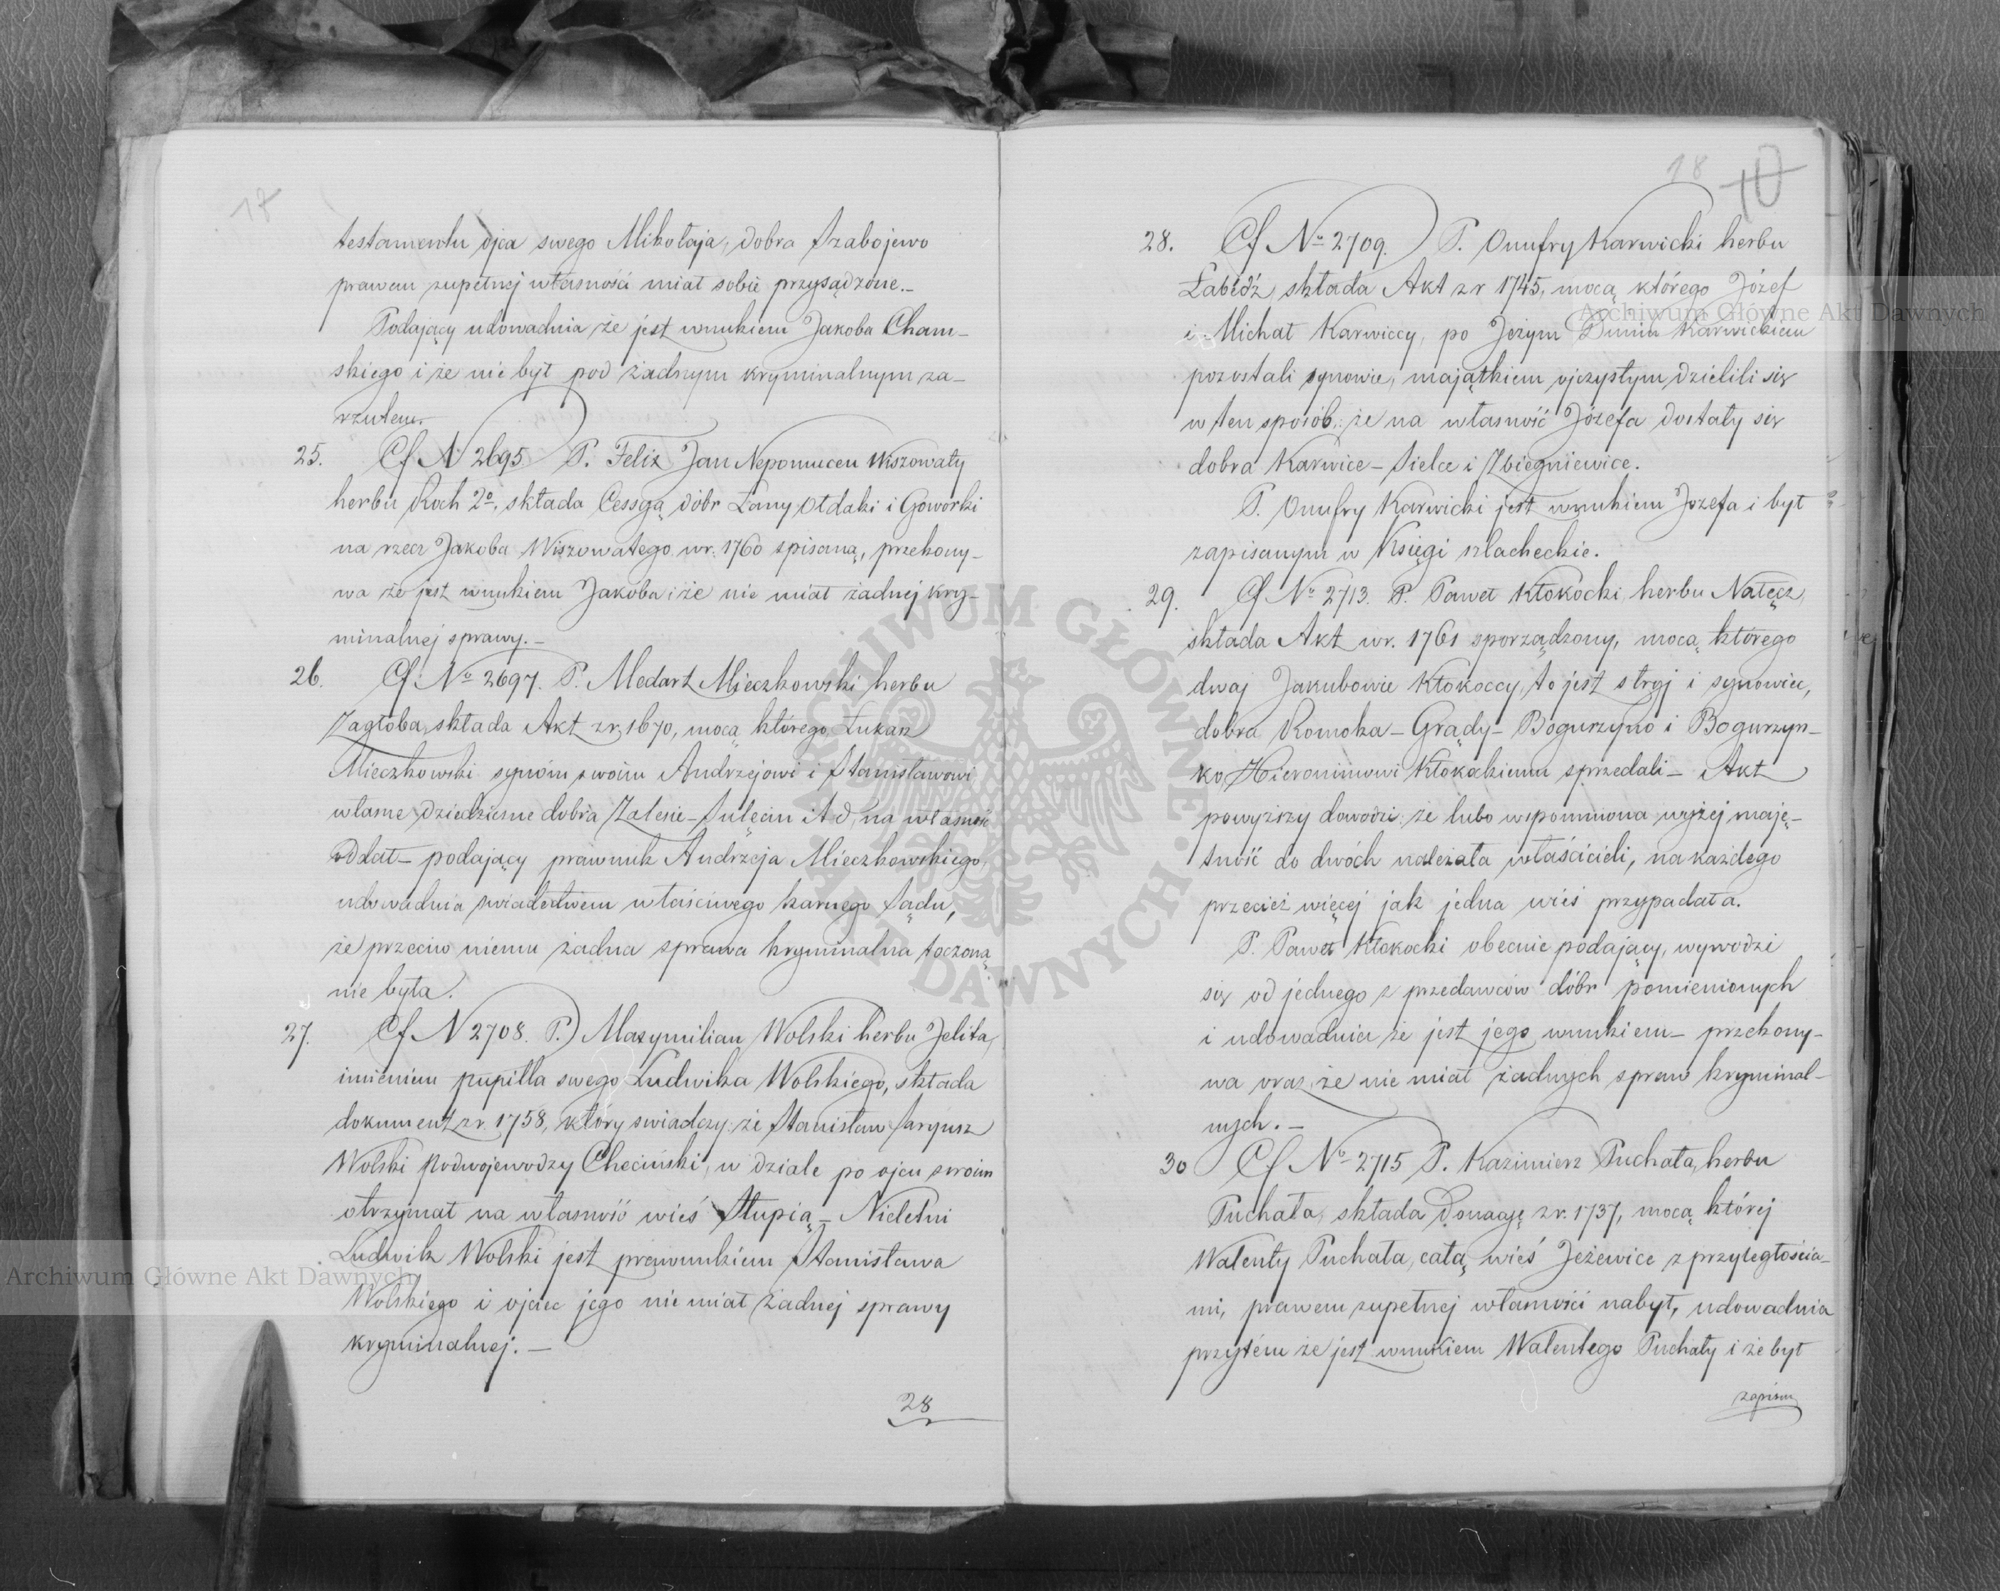 17
testamentu ojca swego Mikołaja, dobra Szabojewo
prawem zupełnej własności miał sobie przysądzone.–
Podający udowadnia że jest wnukiem Jakoba Cham–
skiego i że nie był pod żadnym kryminalnym za–
rzutem.
25. Cf N 2695 P. Felix Jan Nepomucen Wiszowaty
herbu Roch 2º, składa Cessyą dóbr Łany Ołdaki i Goworki
na rzecz Jakoba Wiszowatego w r. 1760 spisaną, przekony–
wa że jest wnukiem Jakoba i że nie miał żadnej kry–
minalnej sprawy.–
26. Cf Nº 2697. P. Medart Mieczkowski herbu
Zagłoba, składa Akt z r. 1670, mocą którego Łukasz
Mieczkowski synom swoim Andrzejowi i Stanisławowi
własne dziedziczne dobra Zalesie – Sulęcin i t d, na własność
oddał – podający prawnuk Andrzeja Mieczkowskiego,
udowadnia swiadectwem właściwego karnego Sądu,
że przeciw niemu żadna sprawa kryminalna toczoną
nie była.
27. Cf N 2708. P. Maxymilian Wolski herbu Jelita,
imieniem pupilla swego Ludwika Wolskiego, składa
dokument z r. 1758, który swiadczy: że Stanisław Saryusz
Wolski Podwojewodzy Checiński, w dziale po ojcu swoim
otrzymał na własność wieś Słupią – Nieletni
Ludwik Wolski jest prawnukiem Stanisława
Wolskiego i ojciec jego nie miał żadnej sprawy
kryminalnej. –
28
18 10
28. Cf Nº 2709. P. Onufry Karwicki herbu
Łabędź, składa Akt z r 1745, mocą którego Józef
i Michał Karwiccy, po Jeżym Dunin Karwickiem
pozostali synowie, majątkiem ojczystym dzielili się
w ten sposób: że na własność Józefa dostały się
dobra Karwice – Sielce i Zbiegniewice.
P. Onufry Karwicki jest wnukiem Jozefa i był
zapisanym w Księgi szlacheckie.
29. Cf Nº 2713. P. Paweł Kłokocki, herbu Nałęcz,
składa Akt w r. 1761 sporządzony, mocą którego
dwaj Jakubowie Kłokoccy, to jest stryj i synowiec,
dobra Romoka – Grądy – Bogurzyno i Bogurzyn–
ko, Hieronimowi Kłokockiemu sprzedali – Akt
powyższy dowodzi: że lubo wspomniona wyżej maję–
tność do dwóch należała właścicieli, na każdego
przecież więcej jak jedna wieś przypadała.
P. Paweł Kłokocki obecnie podający, wywodzi
się od jednego z przedawców dóbr pomienionych
i udowadnia że jest jego wnukiem – przekony–
wa oraz, że nie miał żadnych spraw kryminal–
nych. –
30 Cf Nº 2715 P. Kazimierz Puchała, herbu
Puchała, składa Donacyę z r. 1737, mocą której
Walenty Puchała, całą wieś Jeżewice z przyległościa–
mi, prawem zupełnej własności nabył, udowadnia
przytém że jest wnukiem Walentego Puchały i że był
zapisan
Archiwum Główne Akt Dawnych
Archiwum Główne Akt Dawnych
ARCHIWUM GŁÓWNE AKT DAWNYCH